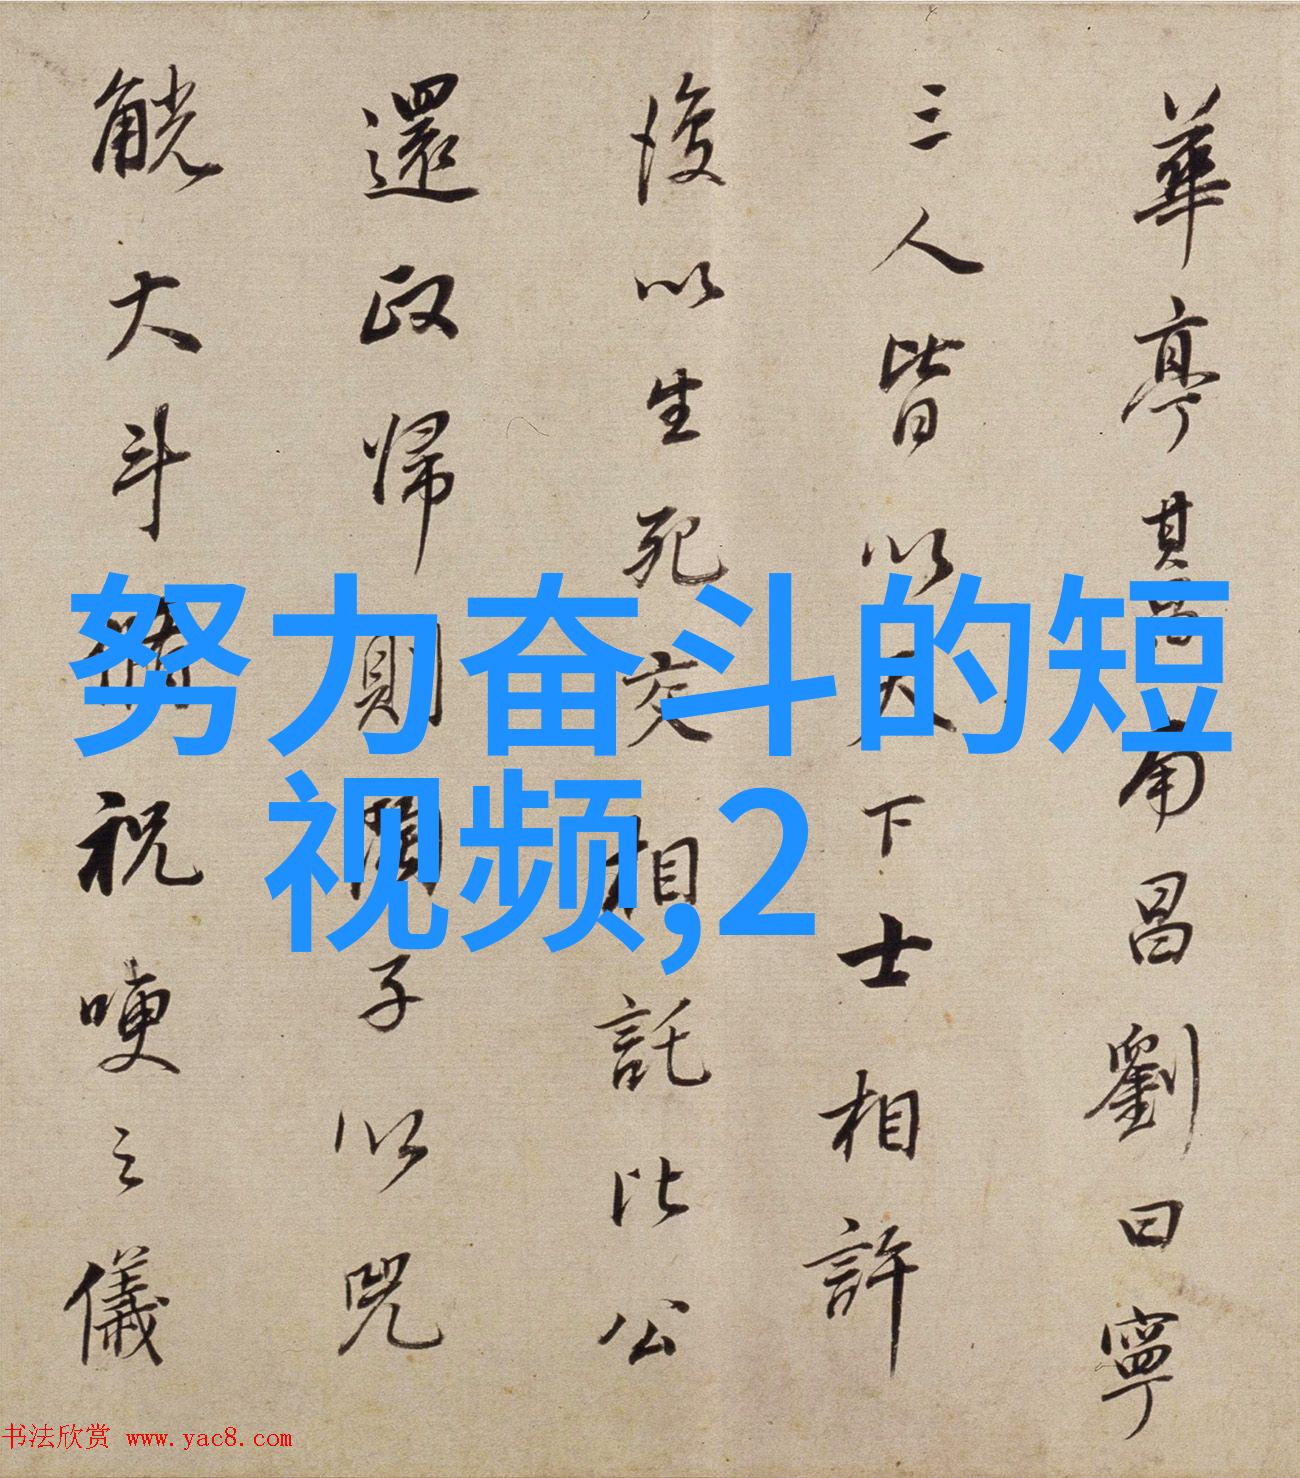 華亭其南昌劉曰寧
三人皆以天下士相許
後以生死交相託比公
還政歸則子以兕
觥大斗祝哽之儀
努力奋斗的短
视频,2
书法欣赏 www.yac8.com